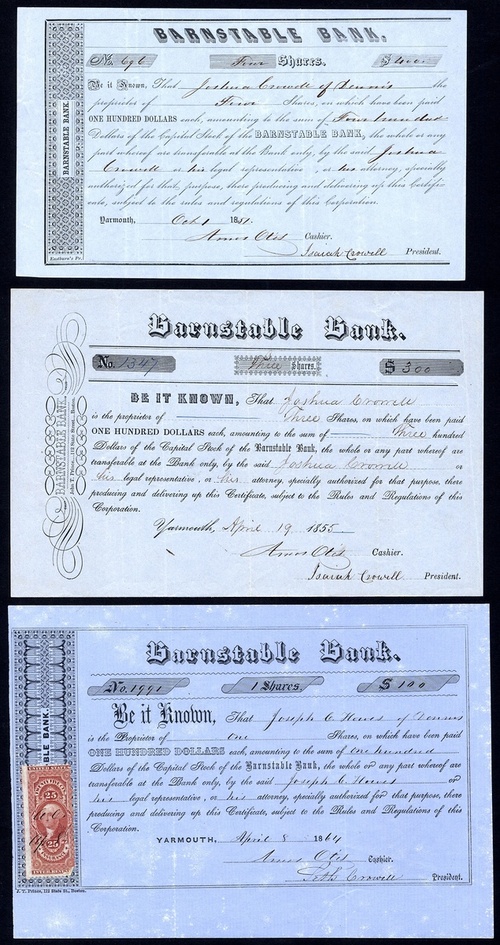 BARNSTABLE BANK.
No. 696 Four Shares. $400
Be it Known, That Joshua Crowell of Dennis the
proprietor of Four Shares, on which have been paid
ONE HUNDRED DOLLARS each, amounting to the sum of Four hundred
Dollars of the Capital Stock of the BARNSTABLE BANK, the whole or any
part whereof are transferable at the Bank only, by the said Joshua
Crowell or his legal representative, or his attorney, specially
authorized for that purpose, these producing and delivering up this Certifi-
cate, subject to the rules and regulations of this Corporation.
Yarmouth, Oct 1 1851.
Amos Otis Cashier.
Isaiah Crowell President.
BARNSTABLE BANK.
Eastburn's Pr.
Barnstable Bank.
No. 1347 Three Shares. $ 300
BE IT KNOWN, That Joshua Crowell
is the proprietor of Three Shares, on which have been paid
ONE HUNDRED DOLLARS each, amounting to the sum of Three hundred
Dollars of the Capital Stock of the Barnstable Bank, the whole or any part whereof are
transferable at the Bank only, by the said Joshua Crowell or
his legal representative, or his attorney, specially authorized for that purpose, these
producing and delivering up this Certificate, subject to the Rules and Regulations of this
Corporation.
Yarmouth, April 19 1855
Amos Otis Cashier.
Isaiah Crowell President.
BARNSTABLE BANK.
Barnstable Bank.
No. 1991 1 Shares. $ 100
Be it Known, That Joseph C. Howes of Dennis
is the Proprietor of one Shares, on which have been paid
ONE HUNDRED DOLLARS each, amounting to the sum of one hundred
Dollars of the Capital Stock of the Barnstable Bank, the whole or any part whereof are
transferable at the Bank only, by the said Joseph C. Howes or
his legal representative, or his attorney, specially authorized for that purpose, these
producing and delivering up this Certificate, subject to the Rules and Regulations of this
Corporation.
YARMOUTH, April 8 1864
Amos Otis Cashier.
Seth Crowell President.
BLE BANK.
25
25